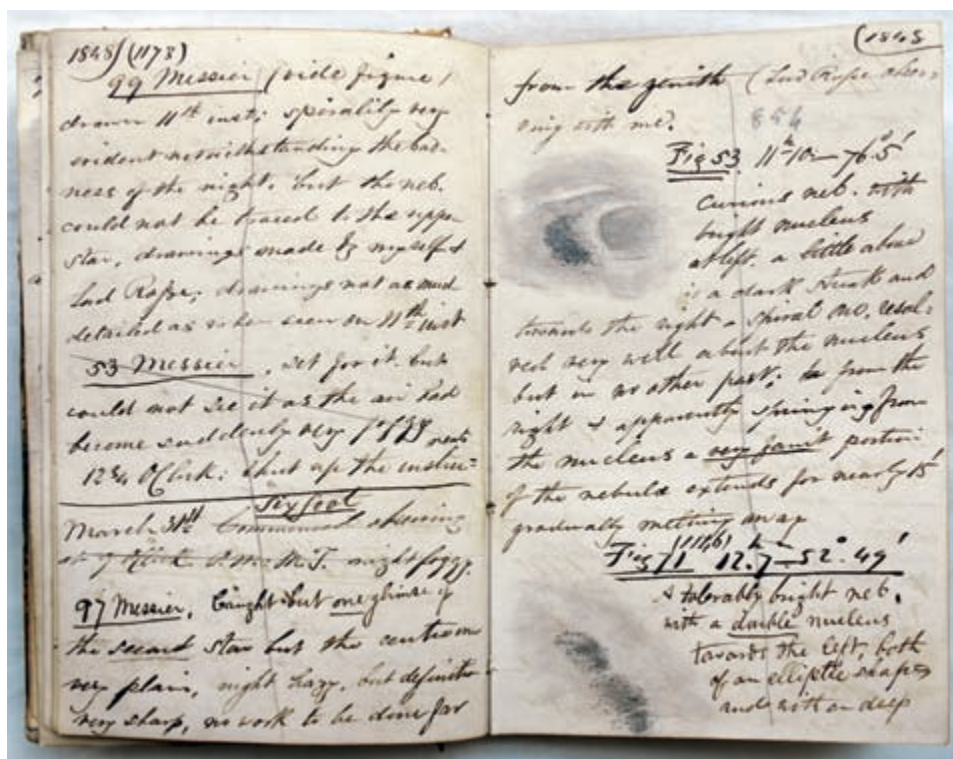 1848 (1173)
99 Messier (vide figure)
drawn 11th inst; spirality very
evident notwithstanding the bad-
ness of the night. but the neb.
could not be traced to the upper
star, drawings made by myself &
Lord Rosse; drawings not as much
detailed as when seen on 11th inst
53 Messier, set for it but
could not see it as the air had
become suddenly very foggy
12¾ O'Clock: shut up the
Six foot
March 31st Commenced observing
at 7 O'Clock P.M. M.T. night foggy.
97 Messier. Caught but one glimpse of
the second star but the centre one
very plain, night hazy, but definition
very sharp, no work to be done far
(1848
from the zenith (Lord Rosse obser-
ving with me.
854
Fig 53. 11h 10m 76° 5'
curious neb. with
bright nucleus
at left. a little above
is a dark streak and
towards the right a spiral one. resol-
ved very well about the nucleus
but in no other part; from the
right & apparently springing from
the nucleus a very faint portion
of the nebula extends for nearly 15'
gradually melting away
(1146)
Fig 71 12.7 52° 49'
A tolerably bright neb.
with a double nucleus
towards the left, both
of an elliptic shape
and with a deep